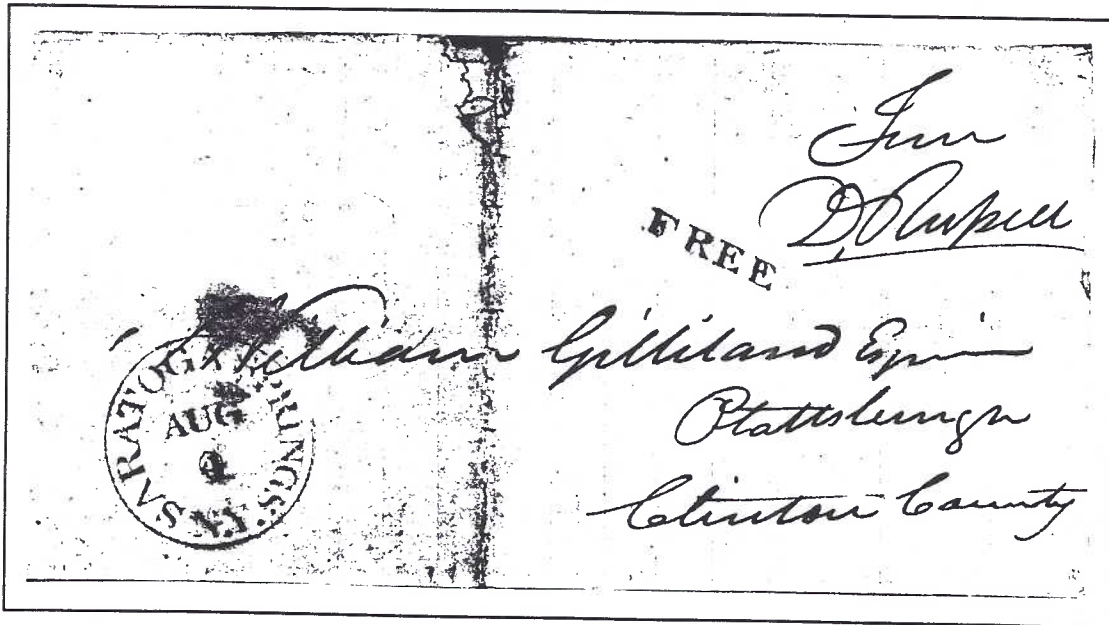 Free
D, Russell
FREE
William Gilliland Esquire
Plattsburgh
Clinton County
SARATOGA SPRINGS. N.Y.
AUG
4